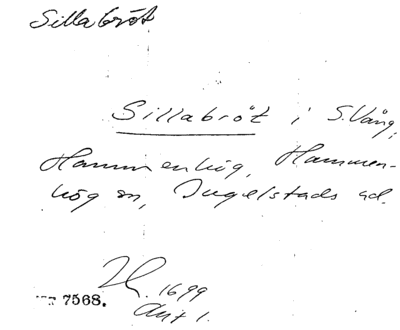 Sillabröt
Sillabröt i S. Vång,
Hammenhög, Hammen-
hög sn, Ingelstads hd.
1699
7568.
Akt 1.